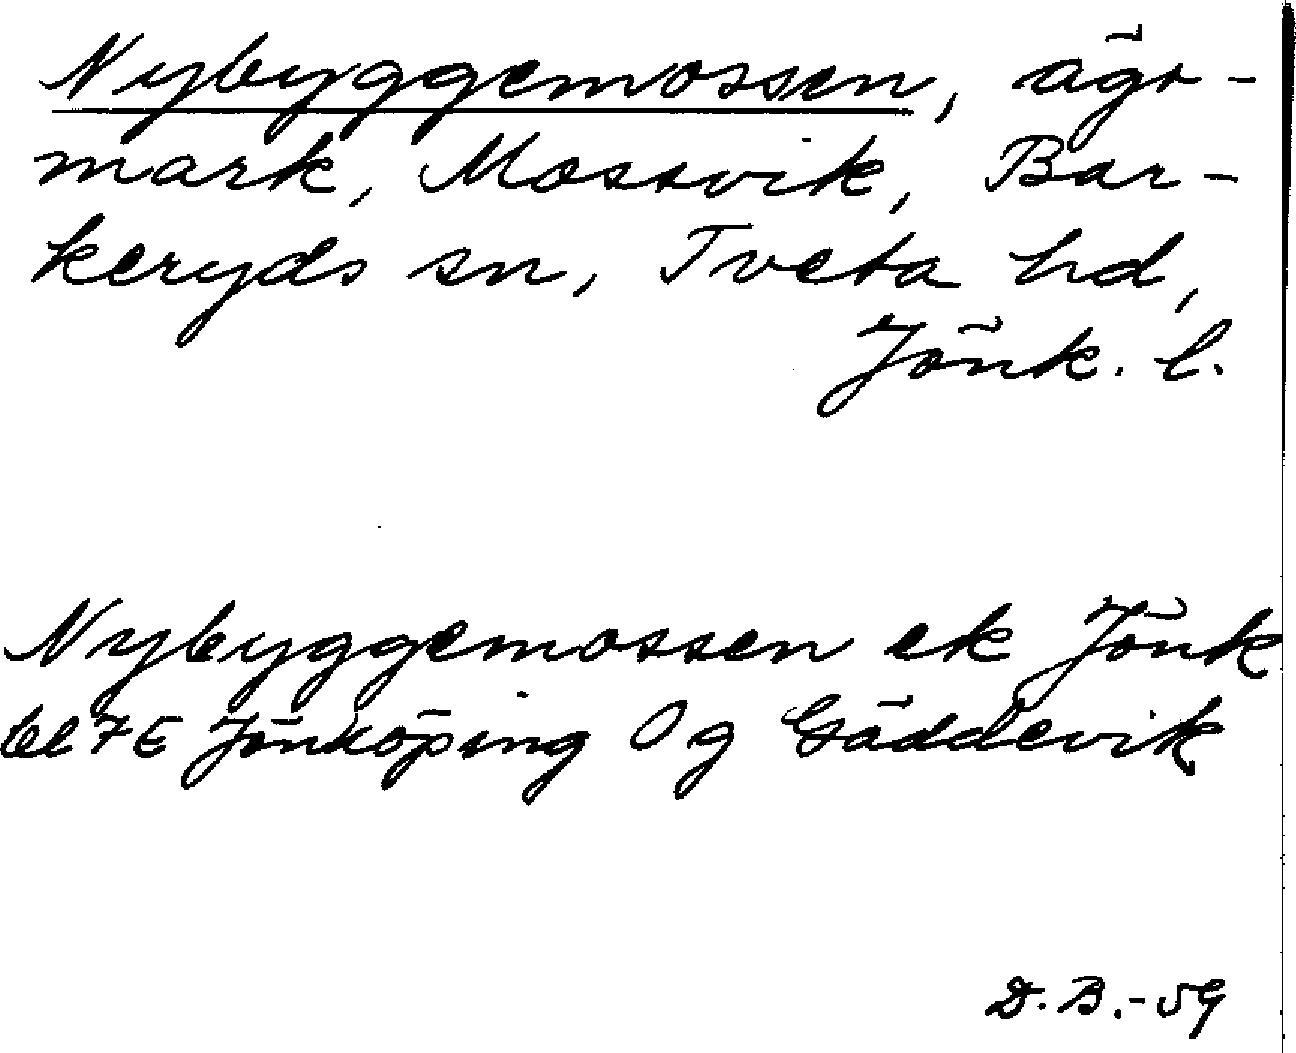 Nybyggemossen, ägo-
mark, Mossvik, Bar-
keryds sn, Tveta hd,
Jönk. l.
Nybyggemossen ek Jönk
bl 7E Jönköping Og Gäddevik
D.B.-59